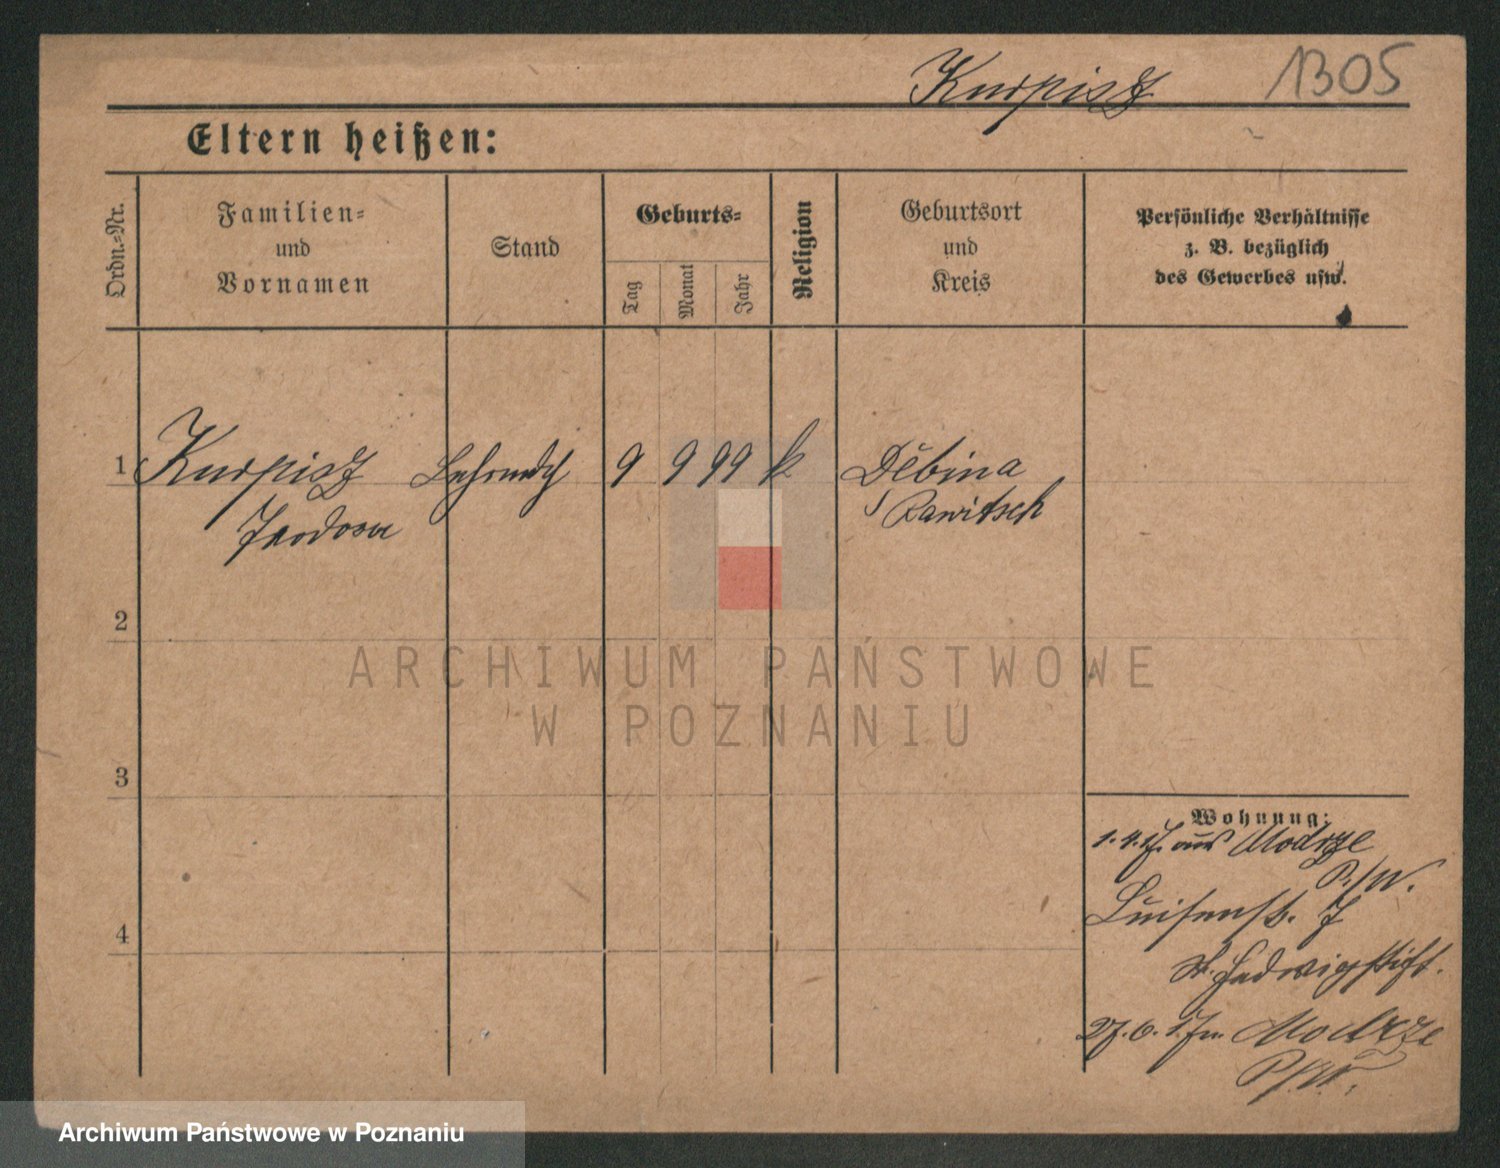 Kurpisz
1305
Eltern heißen:
Ordn.-Nr.
Familien-
und
Vornamen
Stand
Geburts-
Tag
Monat
Jahr
Religion
Geburtsort
und
Kreis
Persönliche Verhältnisse
z. B. bezüglich
des Gewerbes usw.
1 Kurpisz 9 9 99 k Dębina
Teodosia Rawitsch
2
ARCHIWUM PAŃSTWOWE
W POZNANIU
3
Wohnung:
1.4.17. aus Modrze
P./W.
Luisenstr. 7
4
St. Hedwigstift.
27.6.17 n. Modrze
P./W.
Archiwum Państwowe w Poznaniu